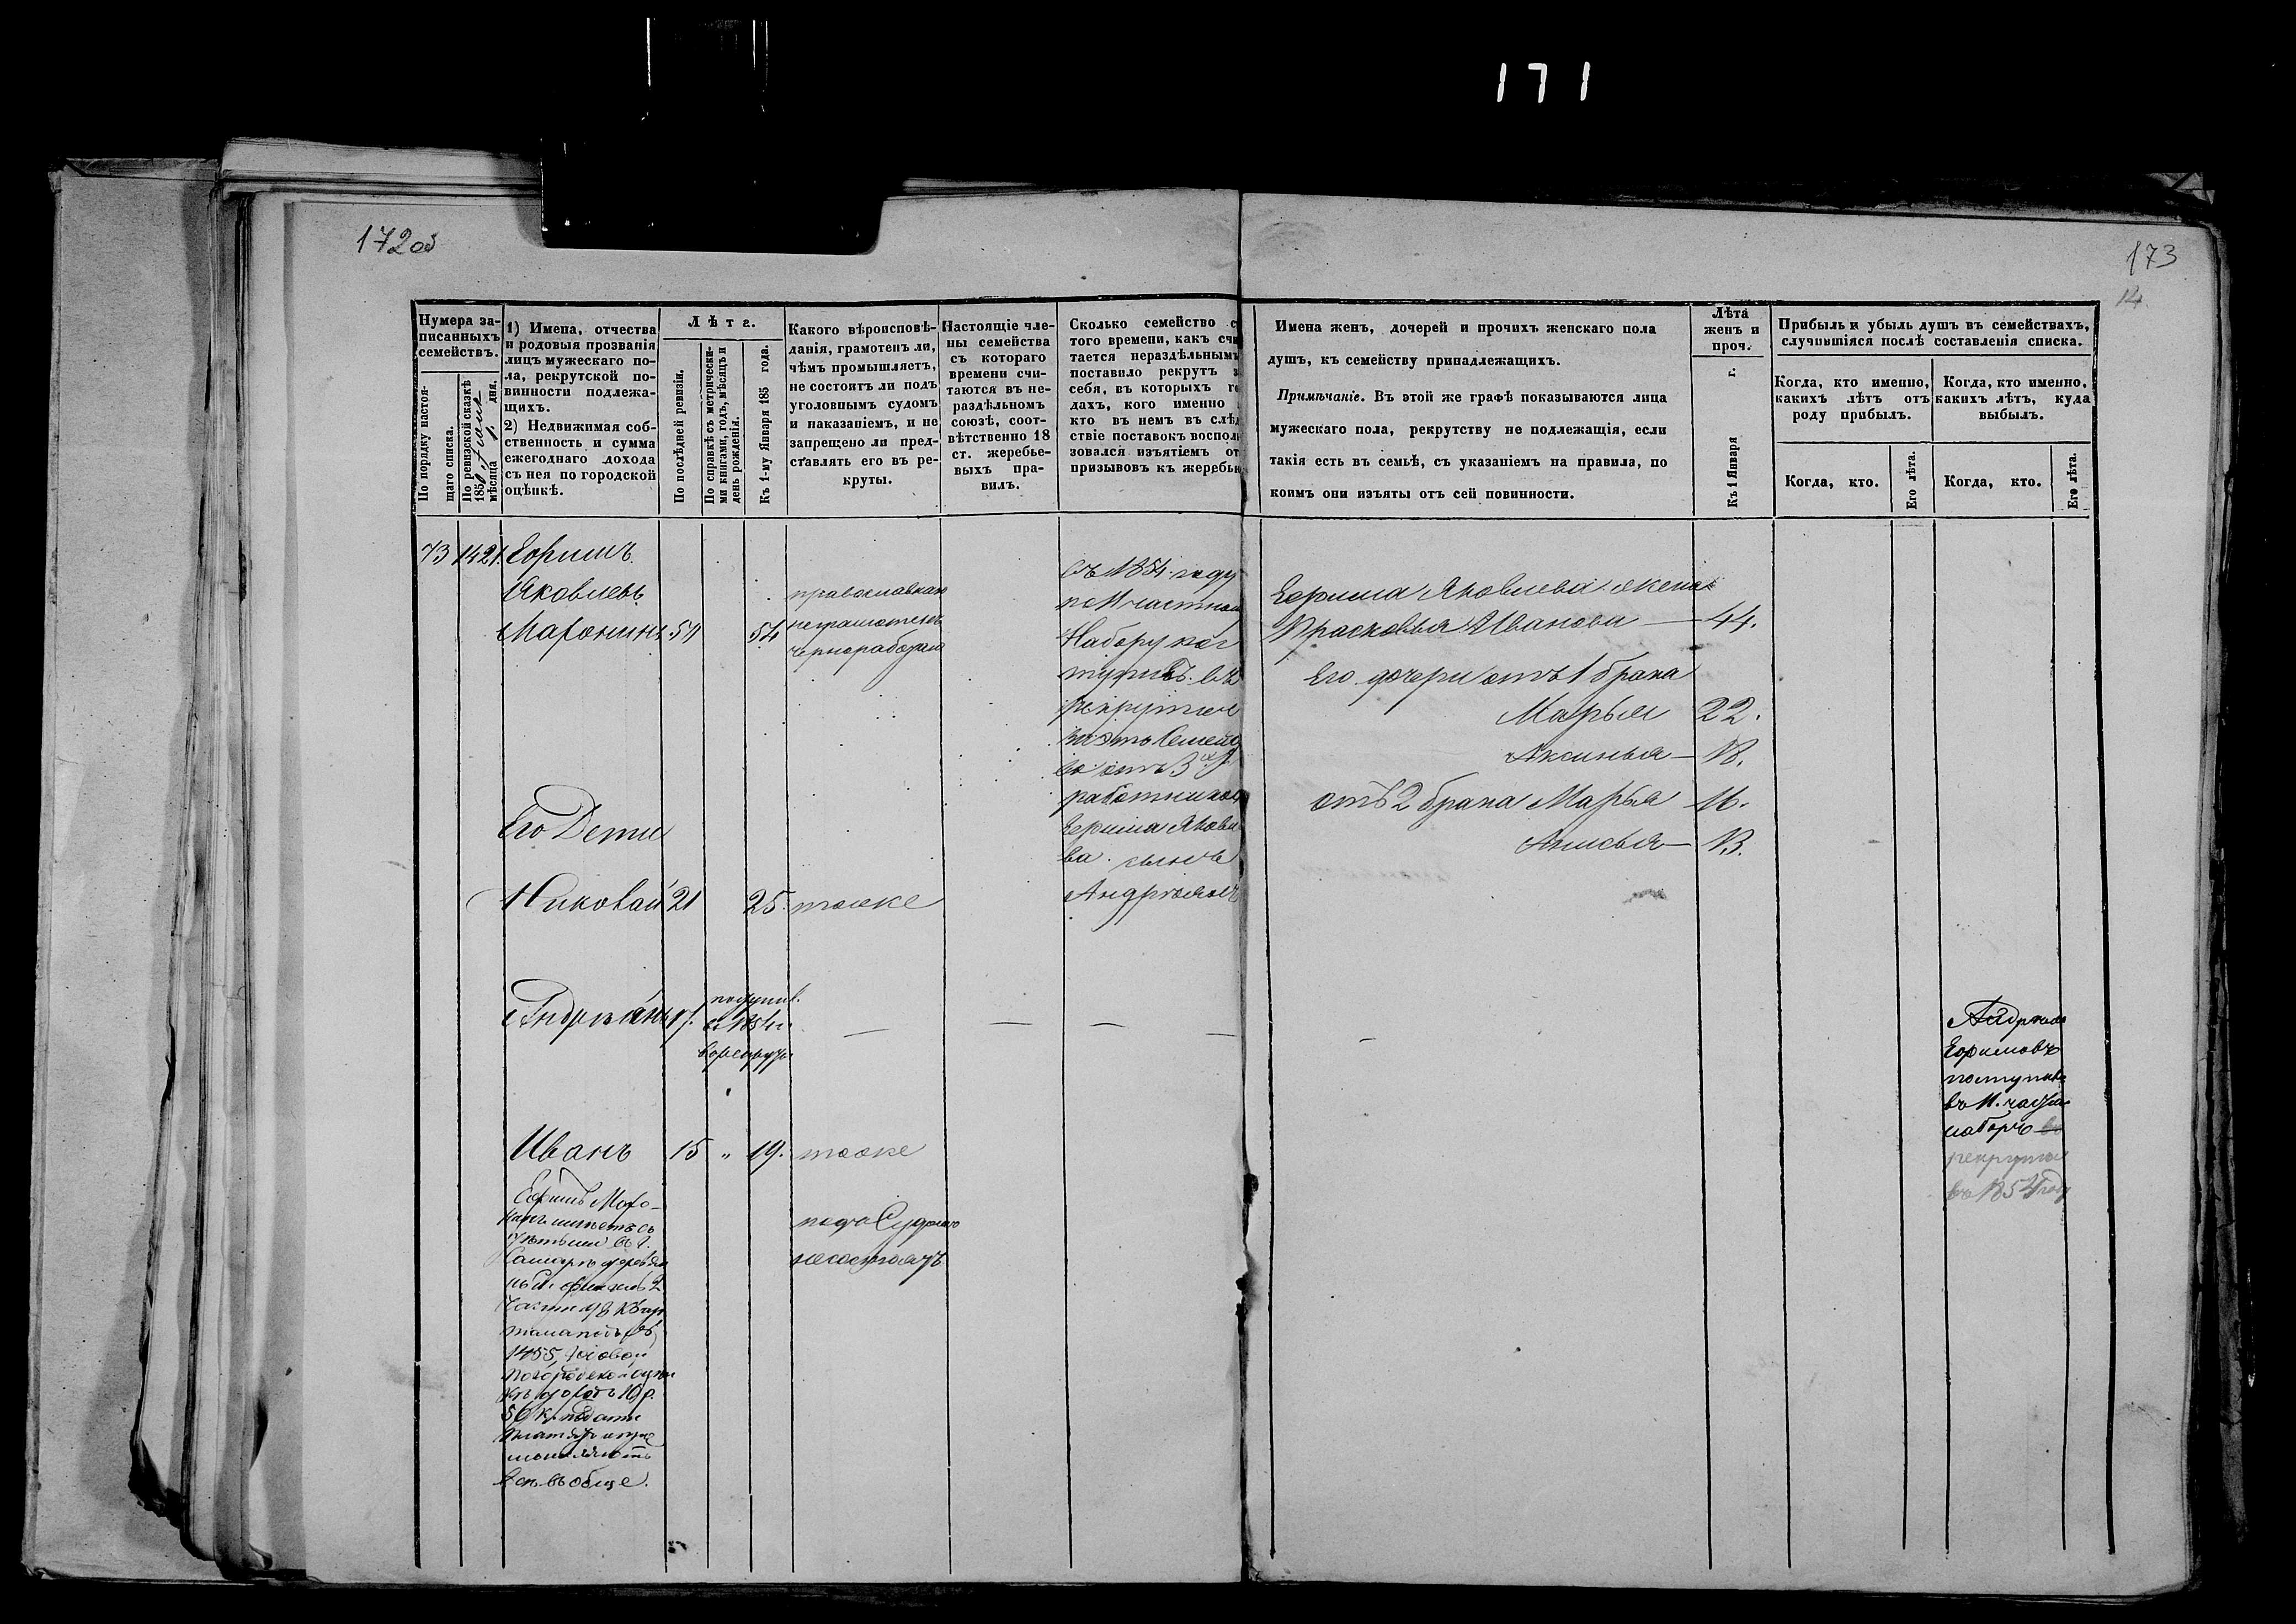 171
172 об
173
14
Нумера за-
писанныхъ
семействъ.
По порядку настоя-
щаго списка.
По ревизской сказкѣ
1850
мѣсяца дня.
1) Имена, отчества
и родовыя прозванія
лицъ мужескаго по-
ла, рекрутской по-
винности подлежа-
щихъ.
2) Недвижимая соб-
ственность и сумма
ежегоднаго дохода
съ нея по городской
оцѣнкѣ.
Лѣта.
По послѣдней ревизіи.
По справкѣ съ метрически-
ми книгами, годъ, мѣсяцъ и
день рожденія.
Къ 1-му Января 185 года.
Какого вѣроисповѣ-
данія, грамотенъ ли,
чѣмъ промышляетъ,
не состоитъ ли подъ
уголовнымъ судомъ
и наказаніемъ, и не
запрещено ли пред-
ставлять его въ ре-
круты.
Настоящіе чле-
ны семейства
съ котораго
времени счи-
таются въ не-
раздѣльномъ
союзѣ, соот-
вѣтственно 18
ст. жеребье-
выхъ пра-
вилъ.
Сколько семейство с
того времени, какъ счи
тается нераздѣльнымъ
поставило рекрутъ з
себя, въ которыхъ го
дахъ, кого именно
кто въ немъ въ слѣд
ствіе поставокъ восполь
зовался изъятіемъ от
призывовъ къ жеребью
Имена женъ, дочерей и прочихъ женскаго пола
душъ, къ семейству принадлежащихъ.
Примѣчаніе. Въ этой же графѣ показываются лица
мужескаго пола, рекрутству не подлежащія, если
такія есть въ семьѣ, съ указаніемъ на правила, по
коимъ они изъяты отъ сей повинности.
Лѣта
женъ и
проч.
Къ 1 Января г.
Прибыль и убыль душъ въ семействахъ,
случившіяся послѣ составленія списка.
Когда, кто именно,
какихъ лѣтъ от
роду прибылъ.
Когда, кто именно,
какихъ лѣтъ, куда
выбылъ.
Когда, кто.
Его лѣта.
Когда, кто.
Его лѣта.
73 1421. Ефимъ
Яковлевъ
Мафонинъ 54
православнаго
неграмотенъ
чернорабочій
въ 1854 году
по 11 частном
Набору пос
тупилъ въ
рекруты
за это Семейс
во отъ 3хъ
работниковъ
Ефима Яковле
ва сынъ
Андріянъ
Ефима Яковлева жена
Прасковья Иванова — 44.
Его дочери отъ 1 брака
Марья 22.
Аксинья — 18.
отъ 2 брака Марья 16.
Анисья — 13.
Его Дети
Николай 21 25. тоже
Андріянъ 17. поступил.
въ 1854 г.
в рекруты
Андріянъ
Ефимовъ
поступилъ
въ 11. част.
наборъ въ
рекруты
въ 1854 году
Иванъ 15 „ 19. тоже
подъ Судомъ
несостоятъ
Ефимъ
имѣетъ съ
дѣтьми въ г.
Самарѣ деревян
ный
части
1455,
по городской оцен
кѣ доходъ 10 р.
50 к. подати
платятъ
все въ обще.